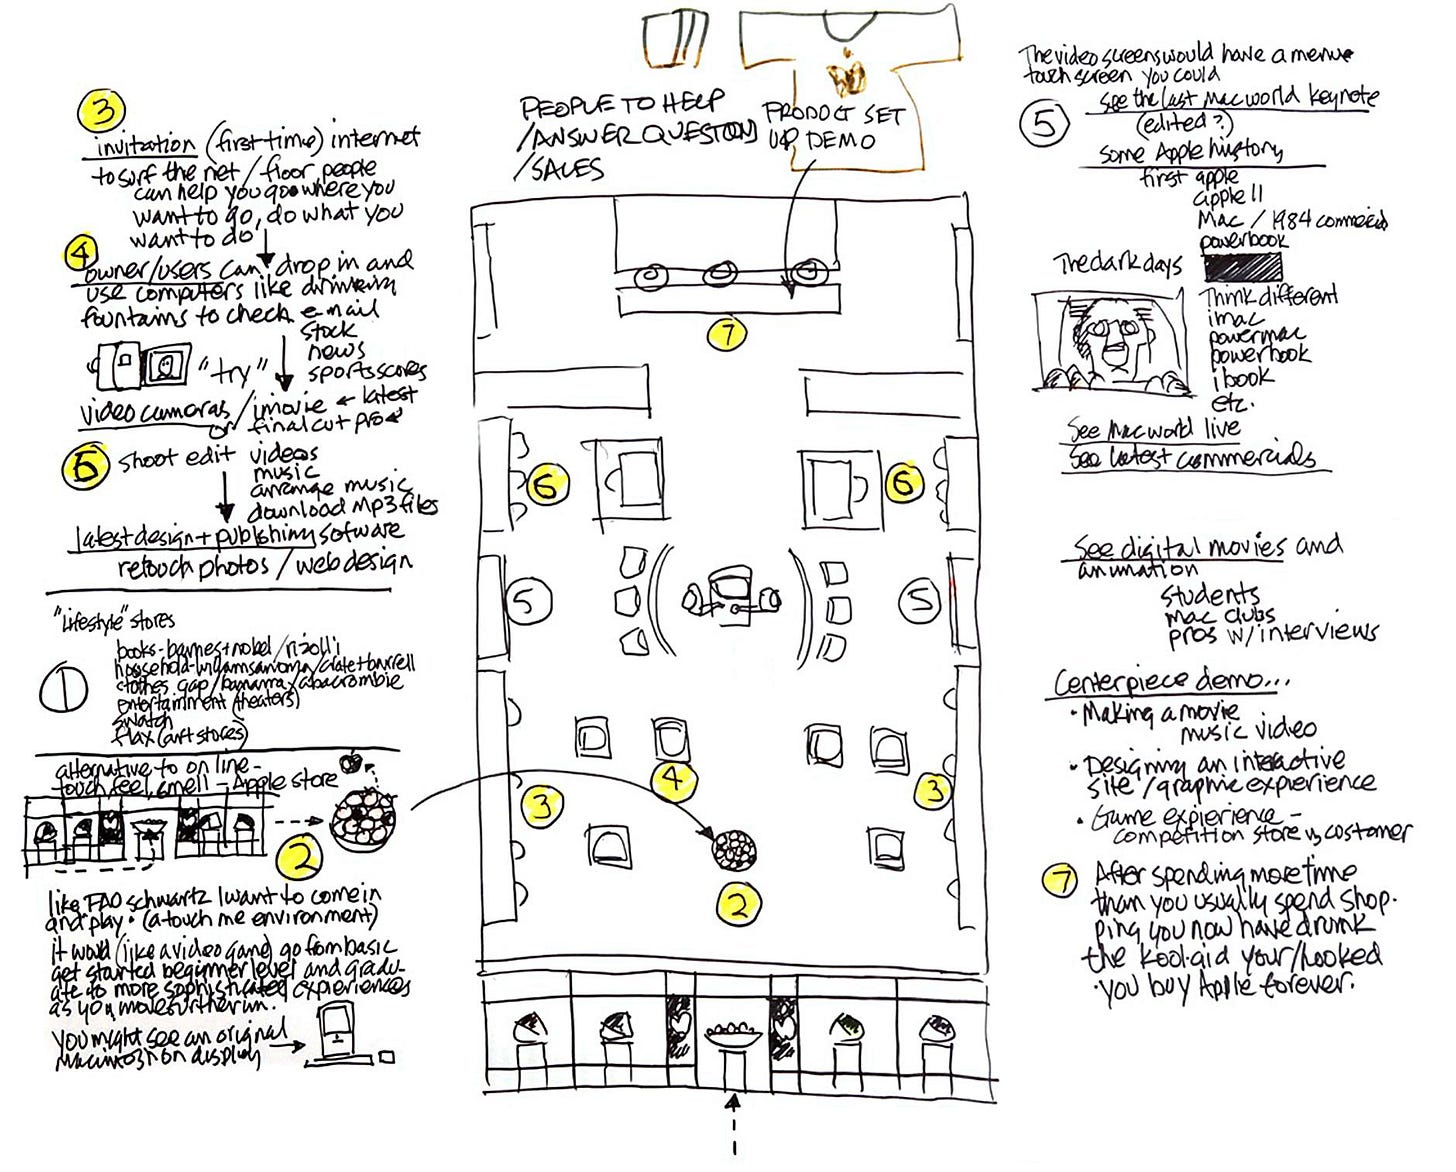 3
invitation (first time) internet
to surf the net / floor people
can help you go where you
want to go, do what you
want to do
4
owner/users can drop in and
use computers like drinking
fountains to check e-mail
stock
news
sports scores
"try"
video cameras / imovie ← latest
or final cut pro
6 shoot edit videos
music
arrange music
download Mp3 files
latest design + publishing sofware
retouch photos / web design
"Lifestyle" stores
1
books - barnes + nobel / rizolli
household - williamsanoma / crate + barrell
clothes gap / banana / abacrombie
entertainment (theaters)
swatch
flax (art stores)
alternative to on line -
touch, feel, smell - Apple store
2
like FAO schwartz I want to come in
and play. (a touch me environment)
it would (like a video game) go from basic
get started beginner level and gradu-
ate to more sophisticated expieriences
as you move further in.
You might see an original
Macintosh on display
PEOPLE TO HELP
/ANSWER QUESTIONS
/SALES
PRODUCT SET
UP DEMO
7
6
6
5
5
4
3
3
2
The video screens would have a menue
touch screen you could
5
see the last Macworld keynote
(edited?)
some Apple history
first apple
apple II
Mac / 1984 commercial
powerbook
The dark days
Think different
imac
powermac
powerbook
ibook
etc.
See Macworld live
See latest commercials
See digital movies and
animation
students
mac clubs
pros w/interviews
Centerpiece demo...
• Making a movie
music video
• Designing an interactive
site / graphic expierence
• Game expierience -
competition store vs costomer
7
After spending more time
than you usually spend shop-
ping you now have drunk
the kool-aid your/hooked
• you buy Apple forever.